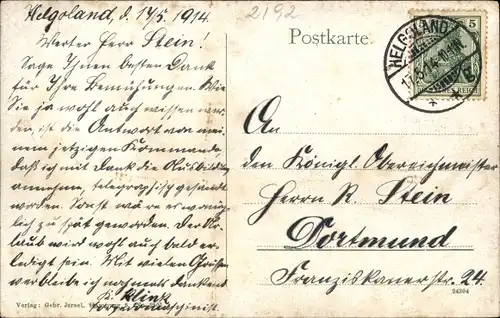 Helgoland, d. 17/5. 1914.
2192
Werter Herr Stein!
Sage Ihnen besten Dank
für Ihre Bemühungen. Wie
Sie ja wohl auch wissen wer-
den, ist die Antwort von mei-
nem jetzigen Kommando
daß ich mit Dank die Ausbildung
annehme, telegraphisch gesandt
worden. Sonst wäre es womög-
lich zu spät geworden. Der Ur-
laub wird wohl auch bald er-
ledigt sein. Mit vielen Grüßen
verbleibe ich nochmals dankend
K. Klink
Torpedomaschinist.
Verlag: Gebr. Jursel,
Postkarte.
5
HELGOLAND
17.5.14
REICH
An
den Königl. Obereichmeister
Herrn R. Stein
Dortmund
Franziskanerstr. 24.
24304